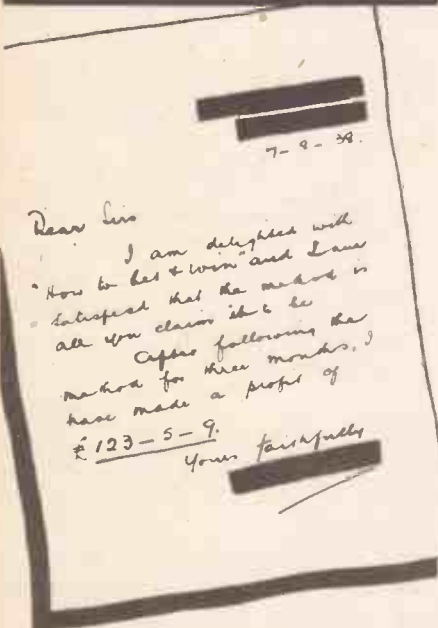 7-8-38.
Dear Sirs
I am delighted with
"How to bet & win" and I am
satisfied that the method is
all you claim it to be
After following the
method for three months, I
have made a profit of
£123-5-9.
Yours faithfully